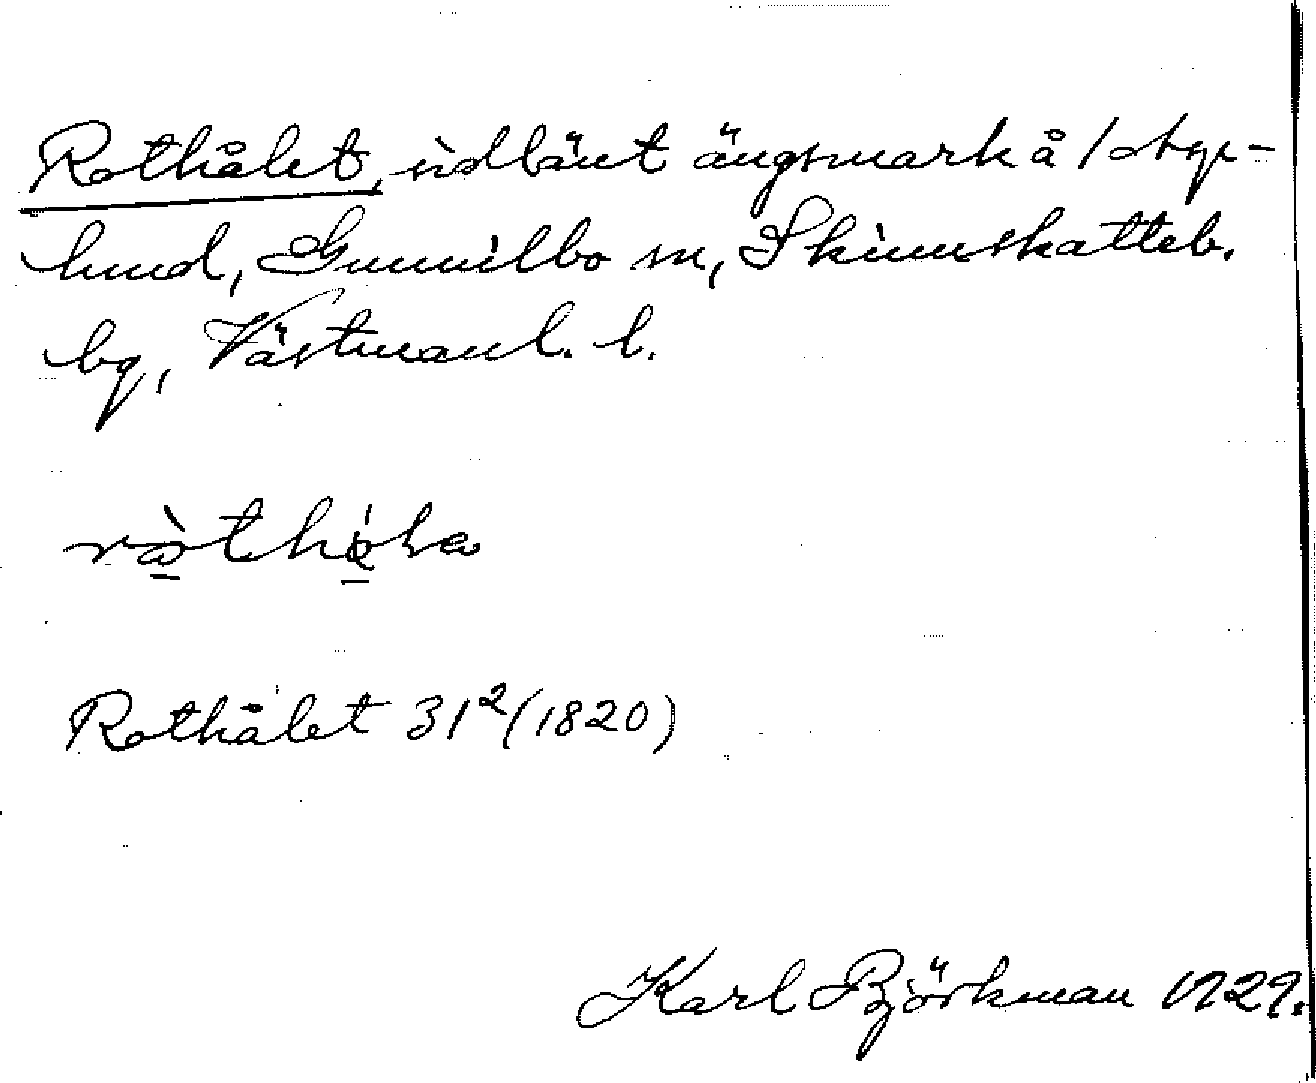 Rothålet, sidlänt ängsmark å
lund, Gunnilbo sn, Skinnskatteb.
bg, Västmanl. l.
Rothålet 31² (1820)
Karl Björkman 1929.